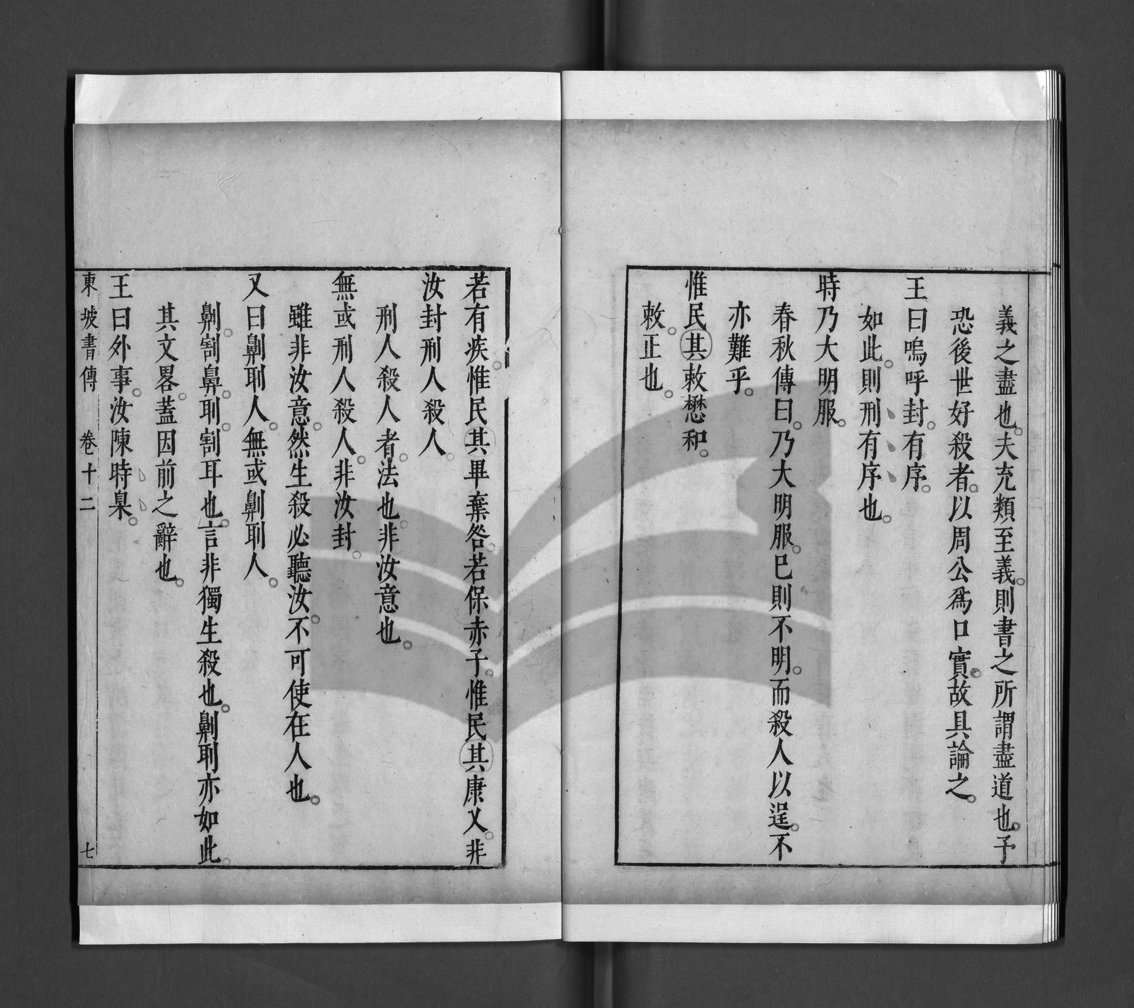 義之盡也。夫充類至義。則書之所謂盡道也。予
恐後世好殺者。以周公爲口實。故具論之。
王曰嗚呼封。有序。
如此。則刑有序也。
時乃大明服。
春秋傳曰。乃大明服。已則不明。而殺人以逞。不
亦難乎。
惟民其敕懋和。
敕。正也。
若有疾。惟民其畢棄咎。若保赤子。惟民其康乂。非
汝封刑人殺人。
刑人殺人者。法也。非汝意也。
無或刑人殺人。非汝封。
雖非汝意。然生殺必聽汝。不可使在人也。
又曰劓刵人。無或劓刵人。
劓。割鼻。刵。割耳也。言非獨生殺也。劓刵亦如此。
其文畧。蓋因前之辭也。
王曰外事。汝陳時臬。
東坡書傳 卷十二 七